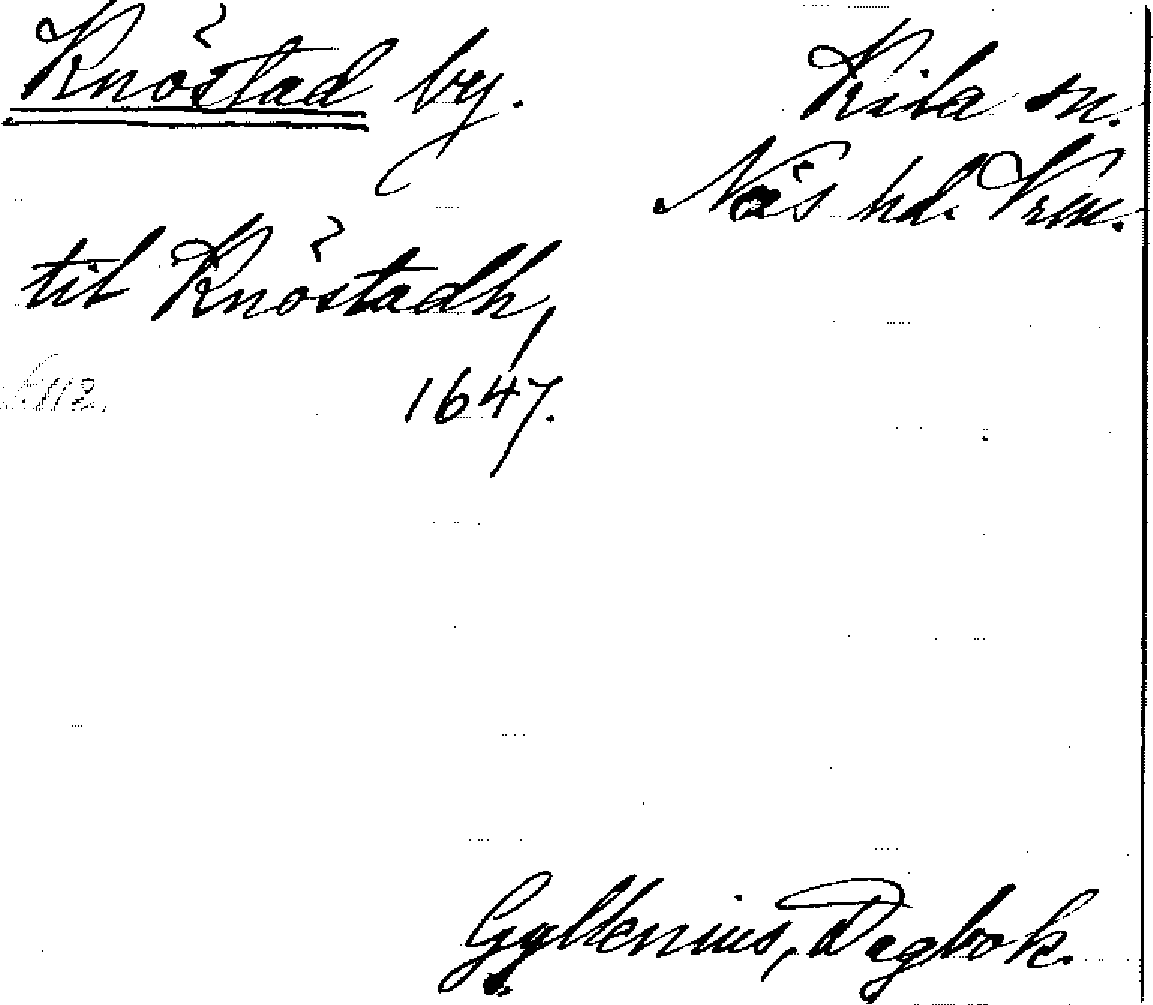 Knöstad by.
Kila sn.
Näs hd. Vrm.
til Knöstadh,
1647.
Gyllenius, Dagbok.